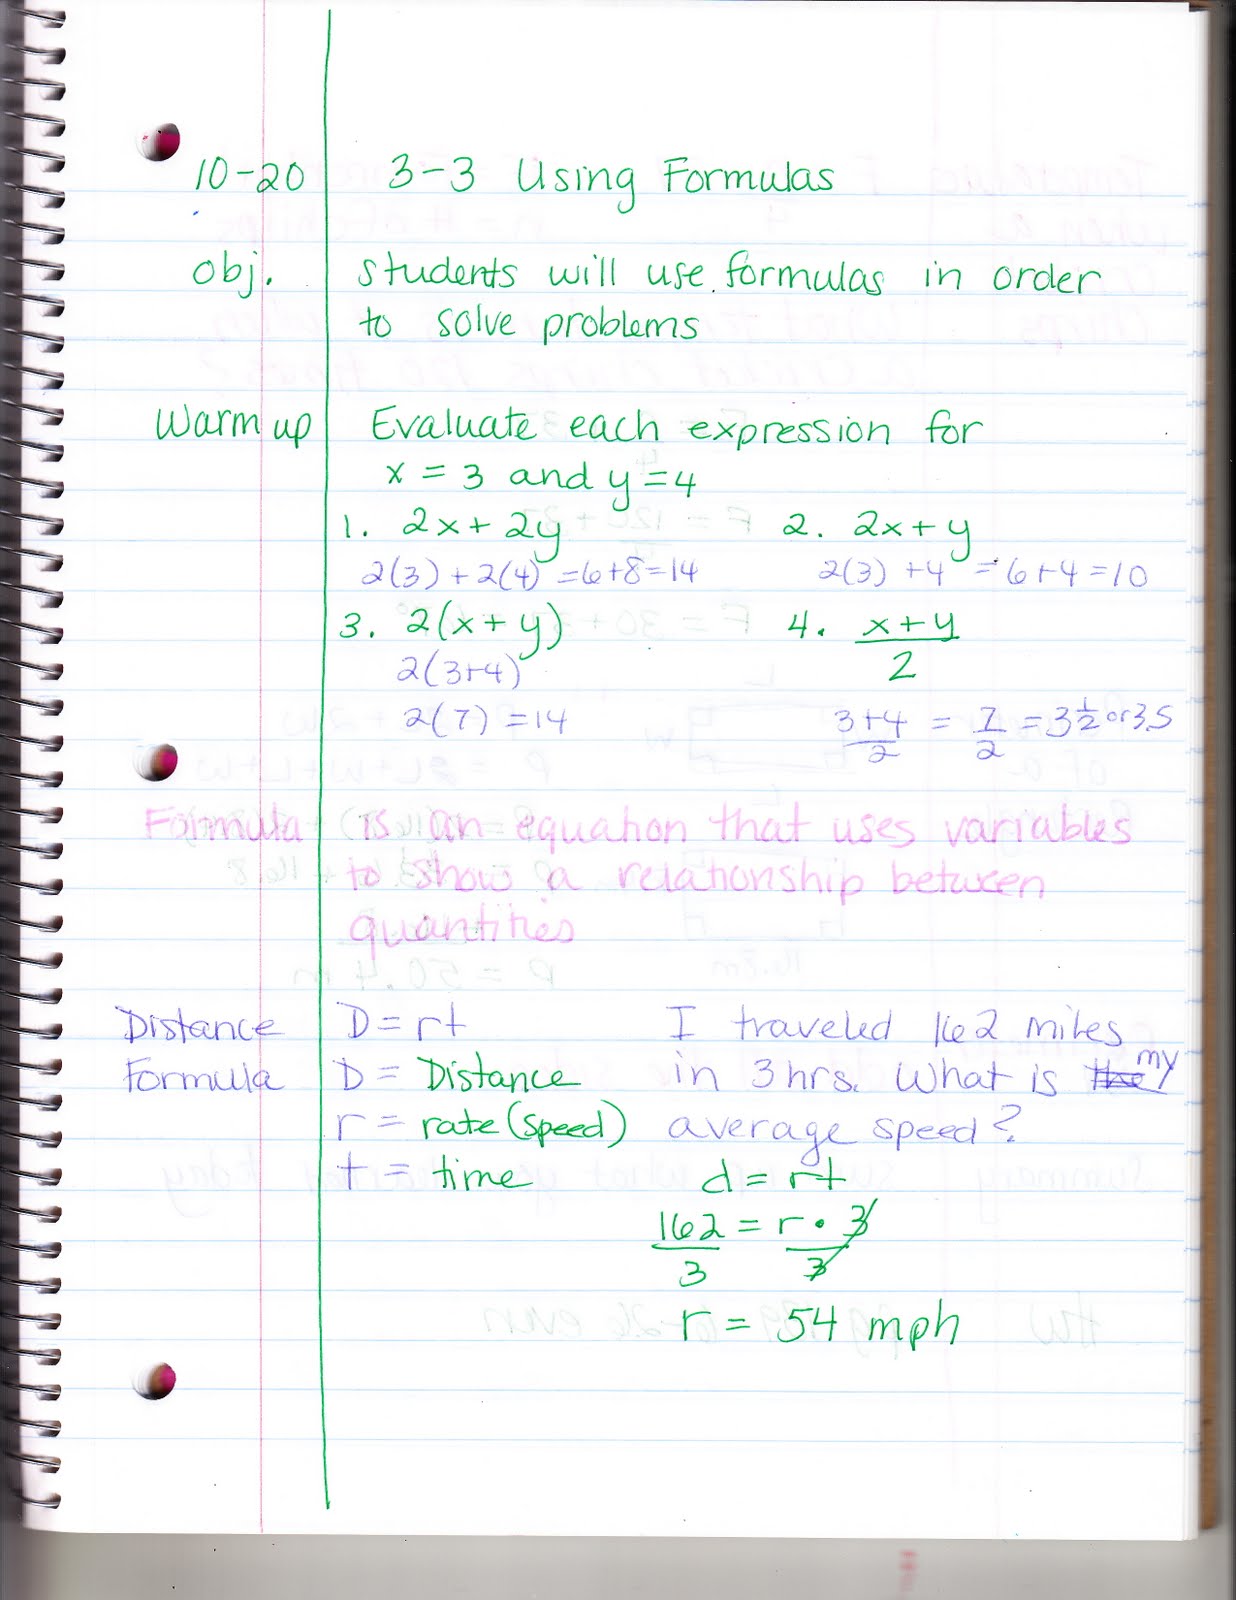 10-20 3-3 Using Formulas
obj. students will use formulas in order
to solve problems
Warm up Evaluate each expression for
x = 3 and y = 4
1. 2x + 2y 2. 2x + y
2(3) + 2(4) = 6+8 = 14 2(3) + 4 = 6+4 = 10
3. 2(x + y) 4. x + y / 2
2(3+4)
2(7) = 14 3+4 / 2 = 7/2 = 3 1/2 or 3.5
Formula is an equation that uses variables
to show a relationship between
quantities
Distance D = rt I traveled 162 miles
Formula D = Distance in 3 hrs. What is the my
r = rate (speed) average speed?
t = time d = rt
162 / 3 = r · 3 / 3
r = 54 mph